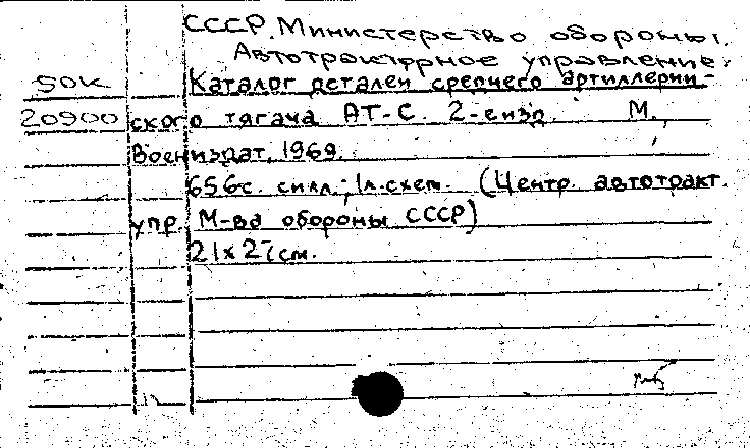 СССР. Министерство обороны.
Автотракторное управление.
50к Каталог деталей среднего артиллерий-
20900 ского тягача АТ-С. 2-е изд. М.,
Воениздат, 1969.
656с. с илл.; 1л.схем. (Центр. автотракт.
упр. М-ва обороны СССР)
21х27см.